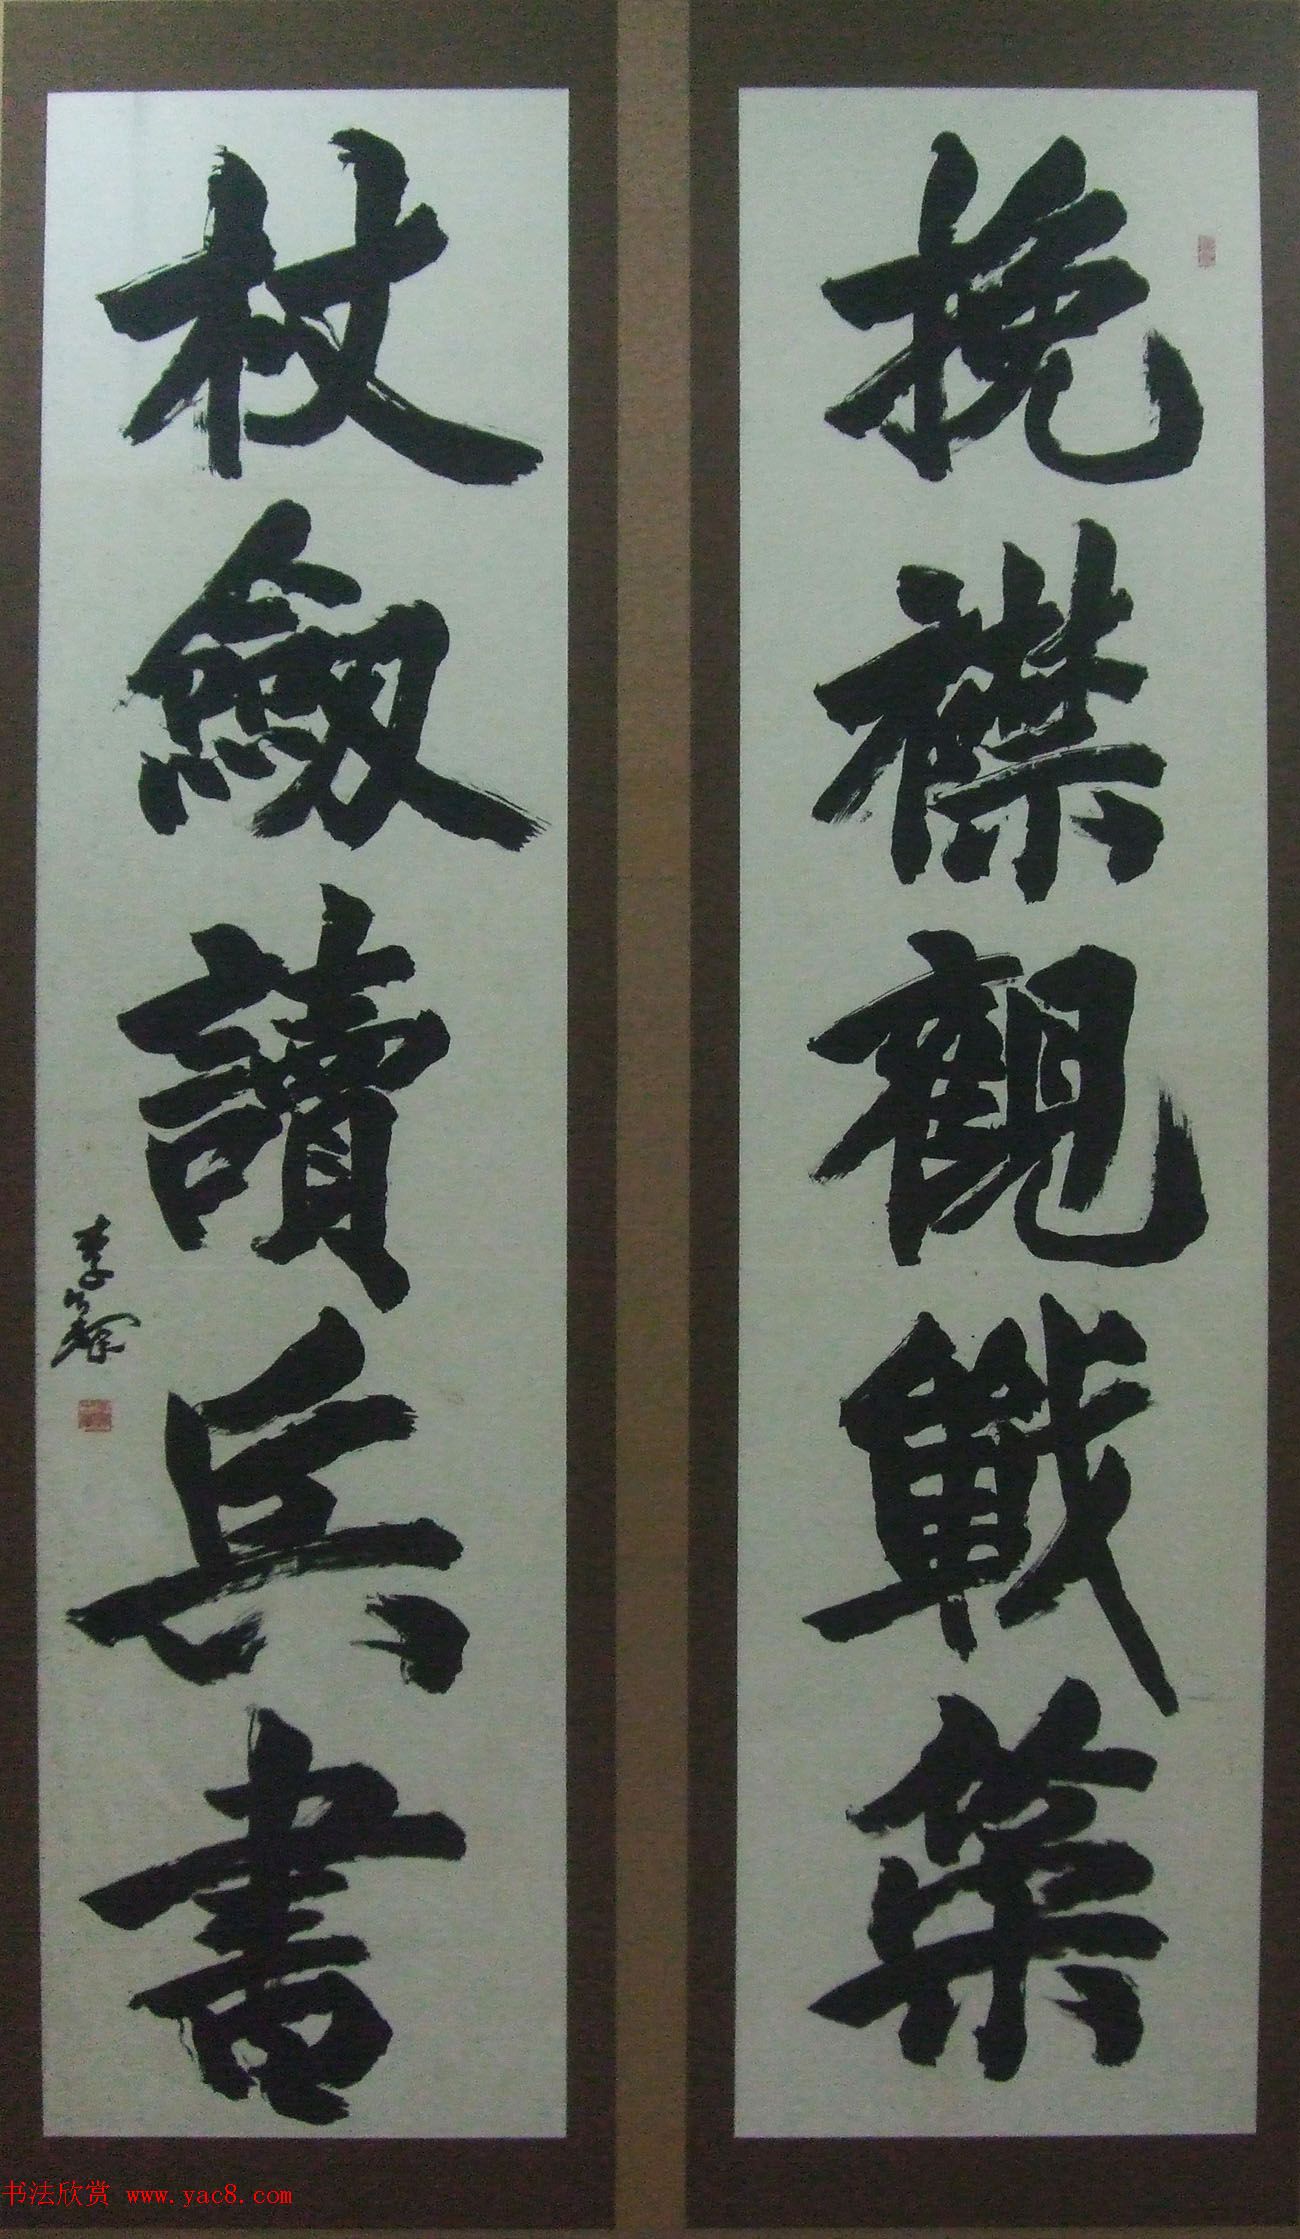 挽襟觀戰策
杖劔讀兵書
书法欣赏 www.yac8.com